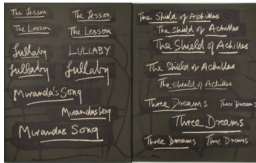 The Lesson The Lesson
The Lesson The Lesson
Lullaby LULLABY
Lullaby Lullaby
Miranda's Song
Mirandas Song
Mirandas Song
The Shield of Achilles
The Shield of Achilles
The Shield of Achilles
The Shield of Achilles
The Shield of Achilles
Three Dreams Three Dreams
Three Dreams
Three Dreams Three Dreams